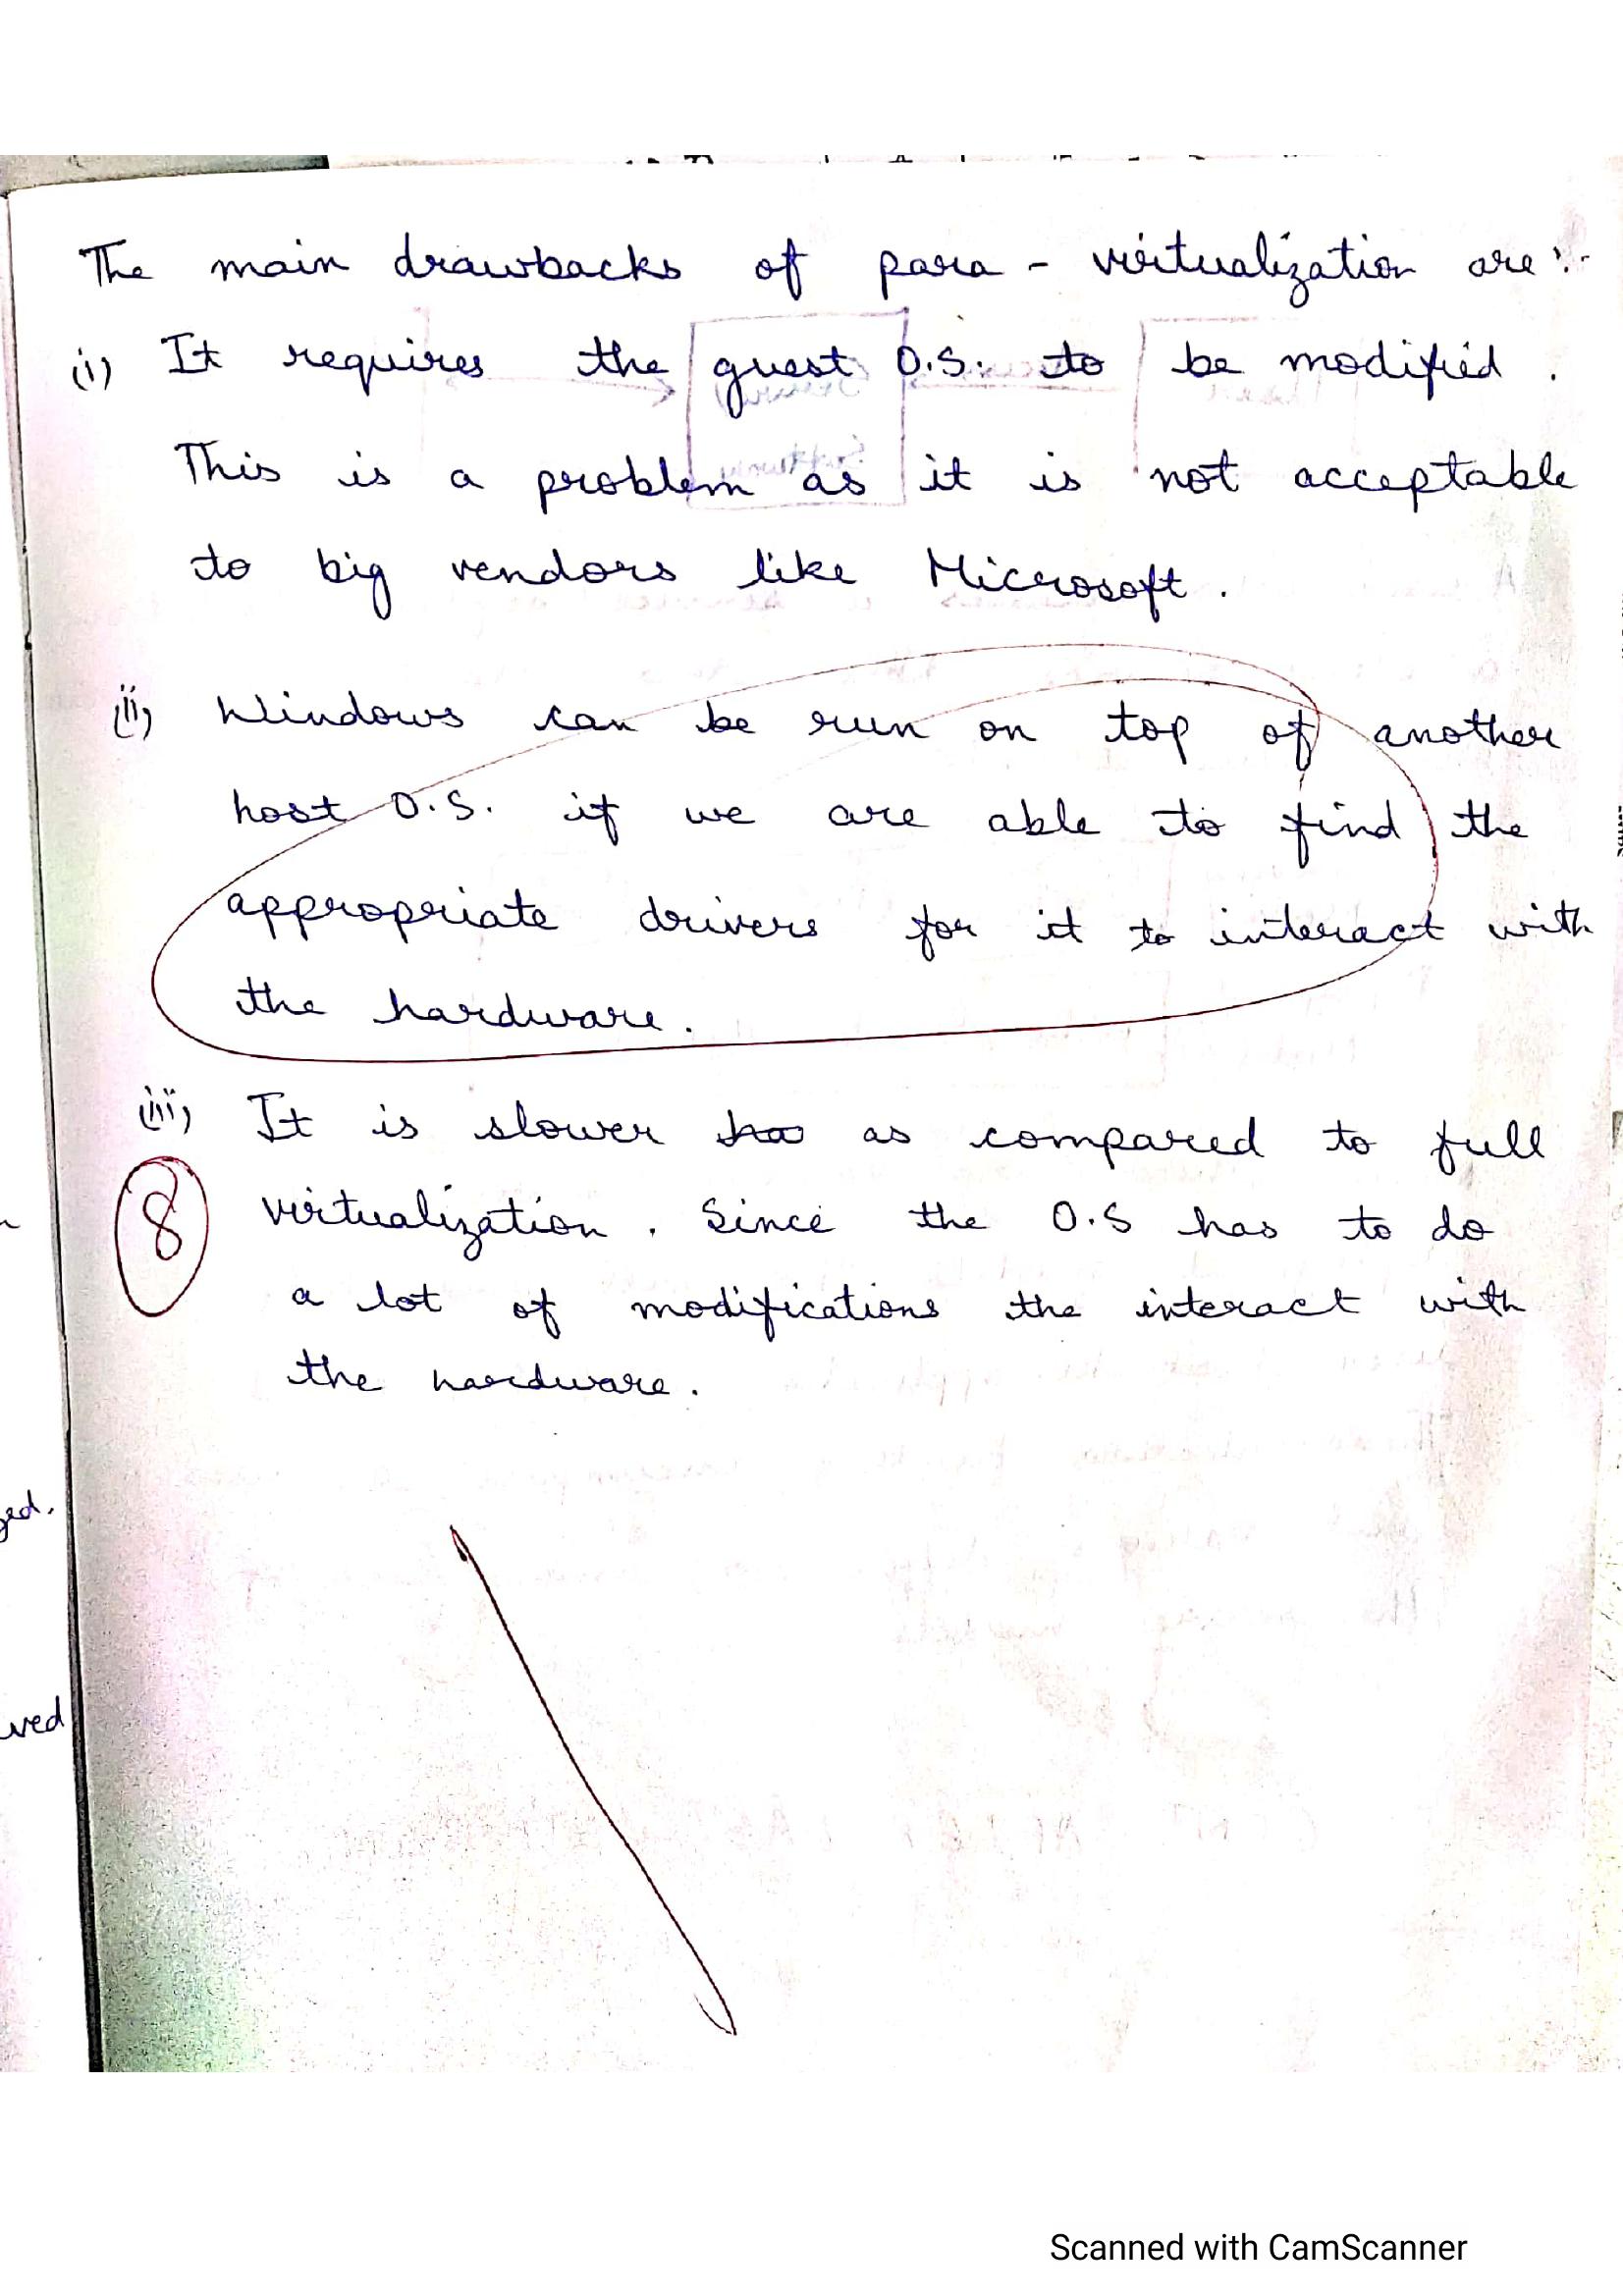 The main drawbacks of para - virtualization are :-
(i) It requires the guest O.S. to be modified .
This is a problem as it is not acceptable
to big vendors like Microsoft .
(ii) Windows can be run on top of another
host O.S. if we are able to find the
appropriate drivers for it to interact with
the hardware .
(iii) It is slower as compared to full
virtualization . Since the O.S has to do
8
a lot of modifications the interact with
the hardware .
ved
Scanned with CamScanner